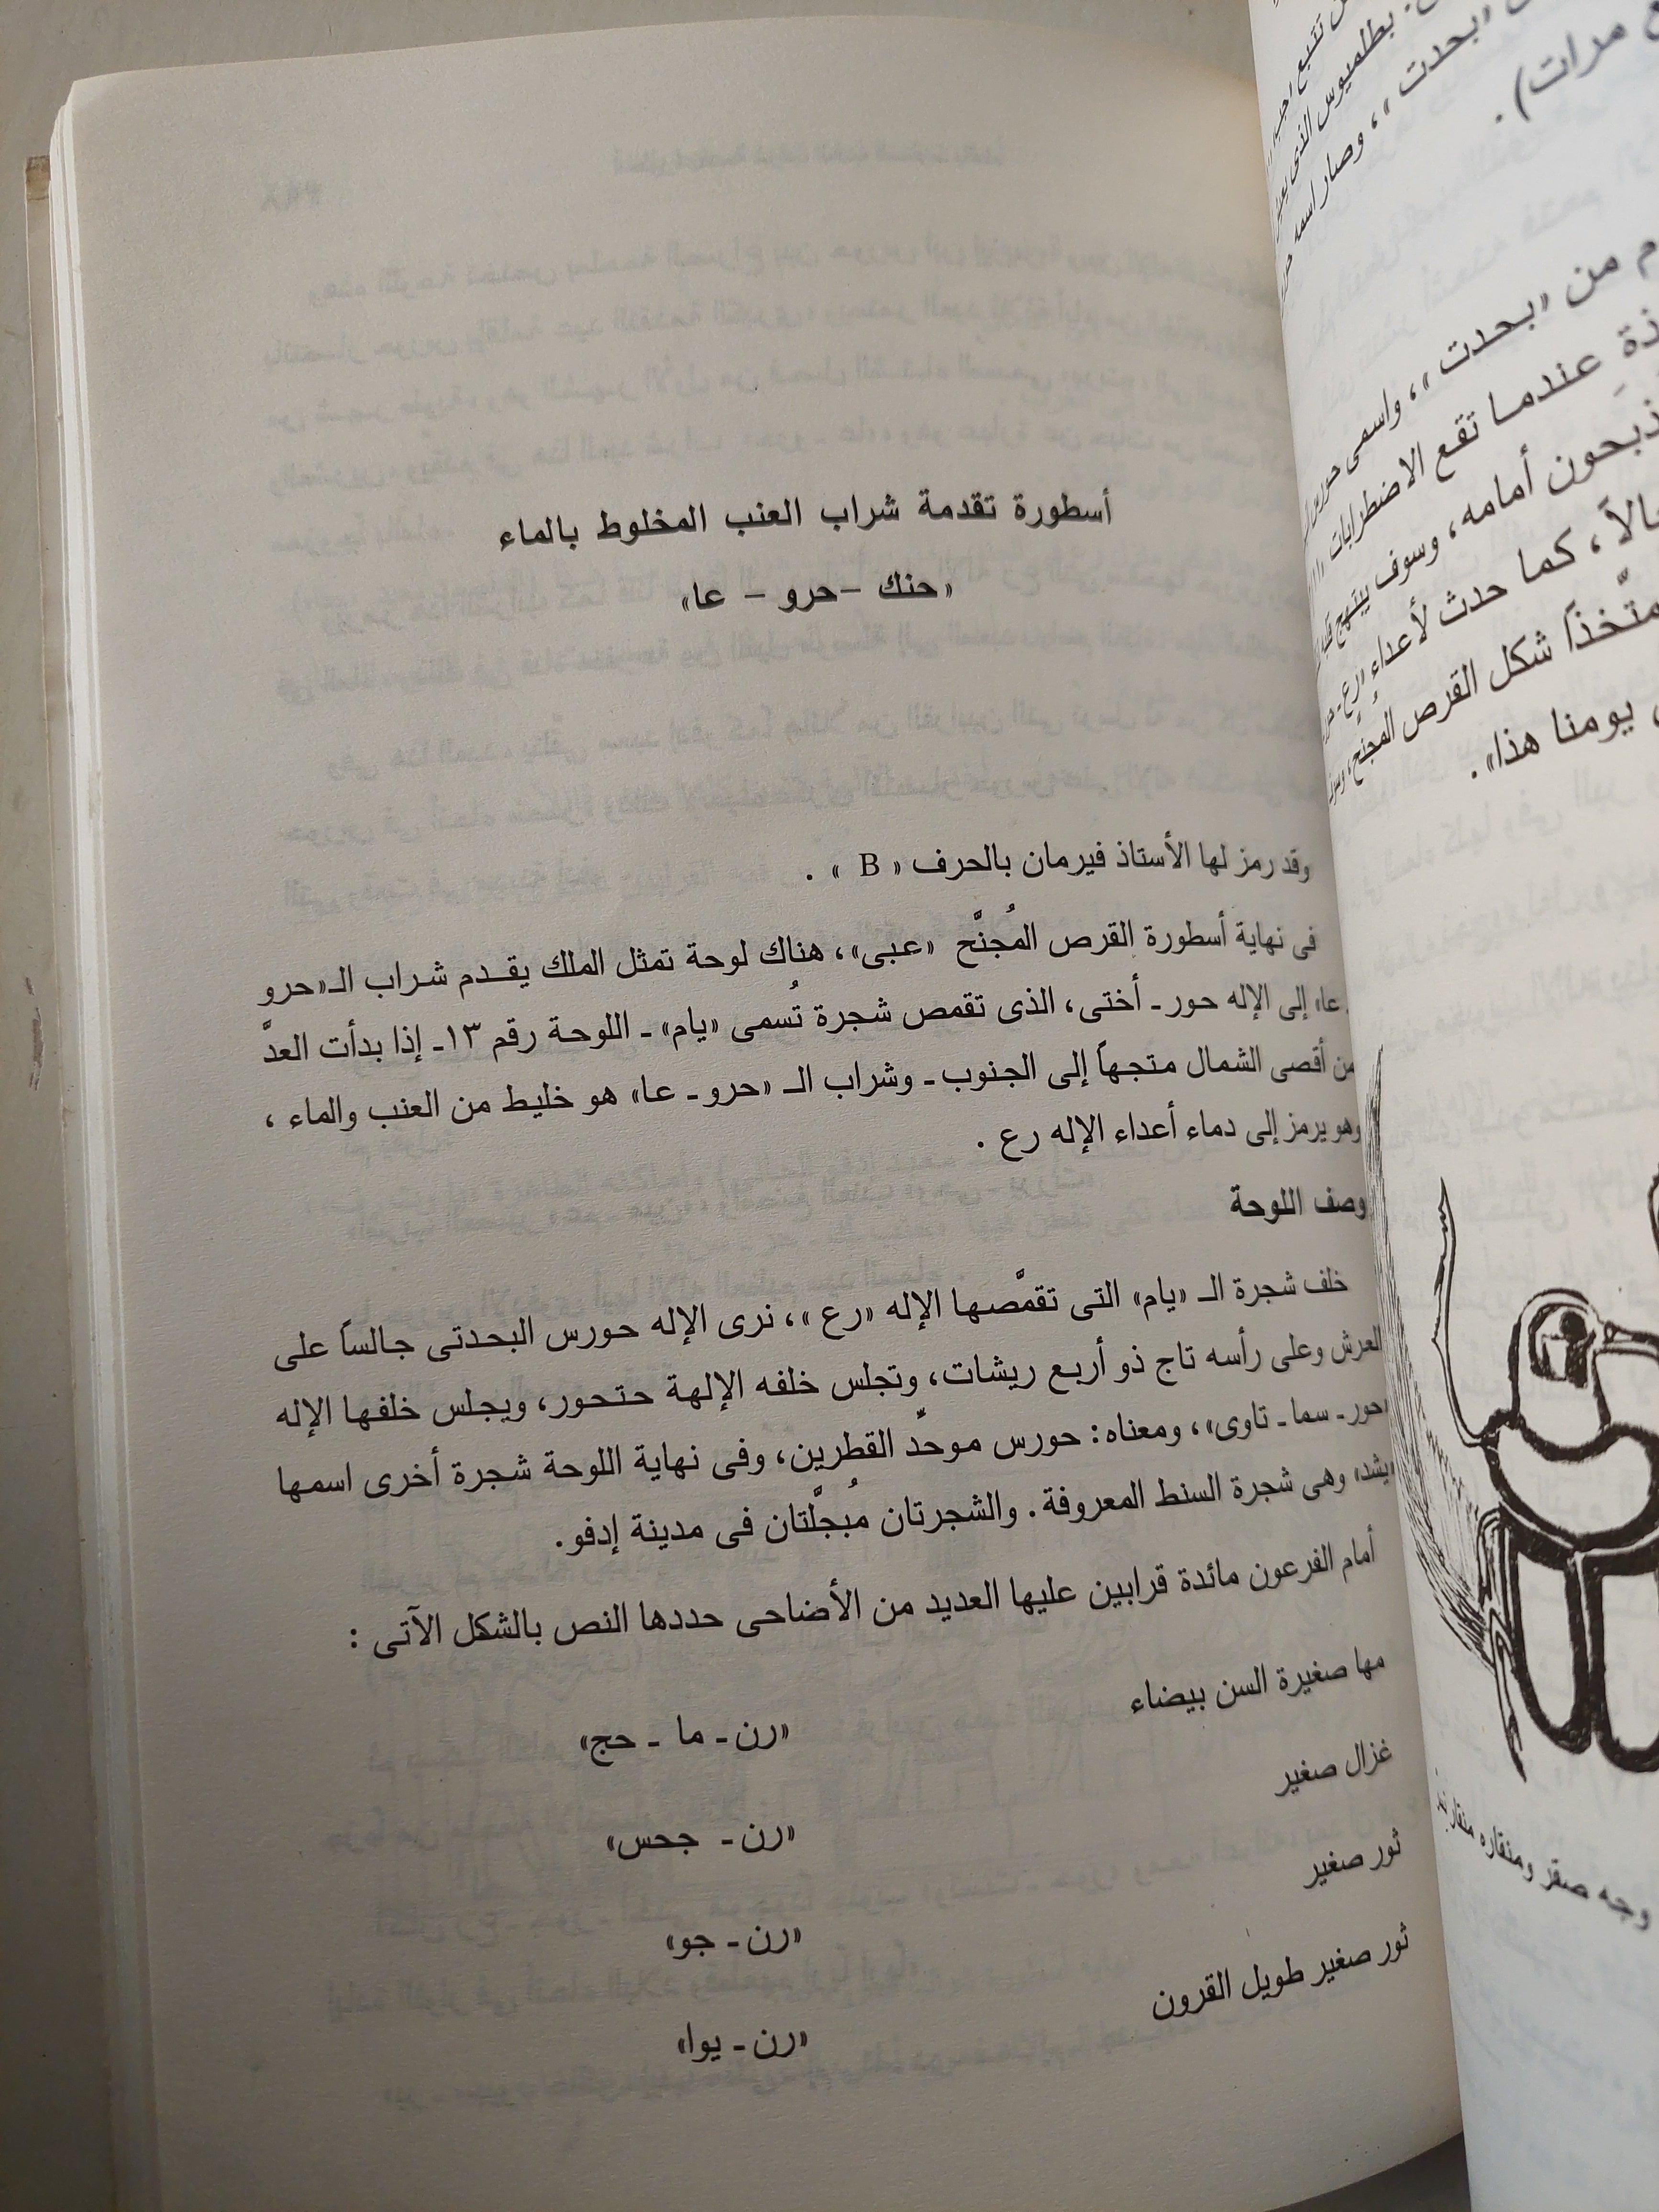 أسطورة تقدمة شراب العنب المخلوط بالماء
«حنك – حرو – عا»
وقد رمز لها الأستاذ فيرمان بالحرف « B » .
فى نهاية أسطورة القرص المُجنَّح «عبى»، هناك لوحة تمثل الملك يقدم شراب الـ«حرو
ـ عا» إلى الإله حور ـ أختى، الذى تقمص شجرة تُسمى «يام» ـ اللوحة رقم ١٣ـ إذا بدأت العدّ
من أقصى الشمال متجهاً إلى الجنوب ـ وشراب الـ «حرو ـ عا» هو خليط من العنب والماء ،
وهو يرمز إلى دماء أعداء الإله رع .
وصف اللوحة
خلف شجرة الـ «يام» التى تقمَّصها الإله «رع »، نرى الإله حورس البحدتى جالساً على
العرش وعلى رأسه تاج ذو أربع ريشات، وتجلس خلفه الإلهة حتحور، ويجلس خلفها الإله
«حور ـ سما ـ تاوى»، ومعناه: حورس موحِّد القطرين، وفى نهاية اللوحة شجرة أخرى اسمها
«يشد» وهى شجرة السنط المعروفة. والشجرتان مُبجلَّتان فى مدينة إدفو.
أمام الفرعون مائدة قرابين عليها العديد من الأضاحى حددها النص بالشكل الآتى :
مها صغيرة السن بيضاء «رن ـ ما ـ حج»
غزال صغير «رن ـ جحس»
ثور صغير «رن ـ جو»
ثور صغير طويل القرون «رن ـ يوا»
«بحدت»، وصار اسمه
مرات).
من «بحدت»، واسمى حورس
عندما تقع الاضطرابات
يذبحون أمامه، وسوف يبتهج
كما حدث لأعداء «رع ـ
متّخذاً شكل القرص المُجنّح،
يومنا هذا».
وجه صقر ومنقاره منقار